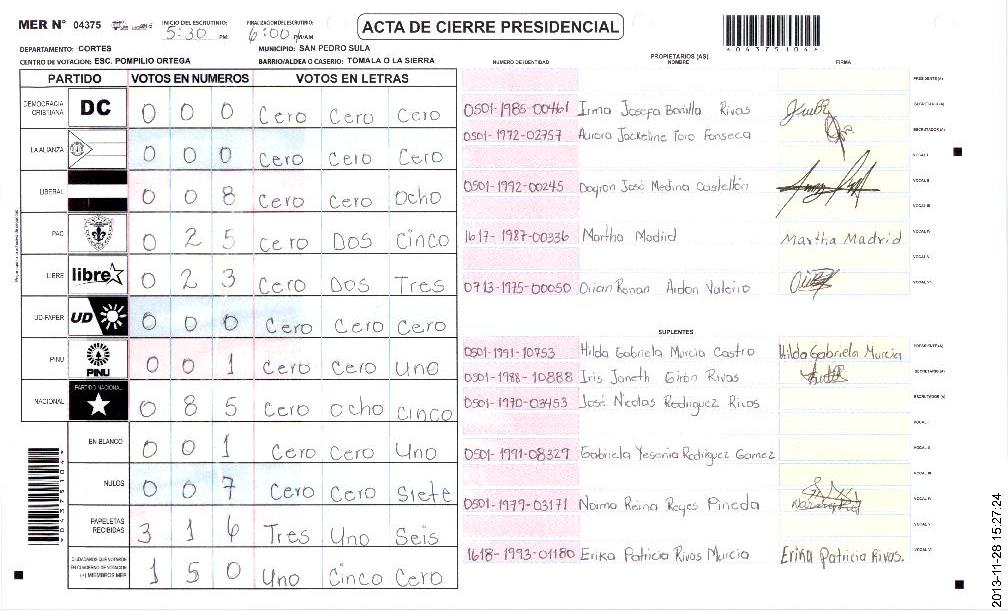 MER N° 04375
INICIO DEL ESCRUTINIO: 5:30 PM
FINALIZACION DEL ESCRUTINIO: 6:00 PM/AM
ACTA DE CIERRE PRESIDENCIAL
*04375104*
DEPARTAMENTO: CORTES
MUNICIPIO: SAN PEDRO SULA
CENTRO DE VOTACION: ESC. POMPILIO ORTEGA
BARRIO/ALDEA O CASERIO: TOMALA O LA SIERRA
PARTIDO VOTOS EN NUMEROS VOTOS EN LETRAS
DEMOCRACIA CRISTIANA DC 0 0 0 Cero Cero Cero
LA ALIANZA 0 0 0 Cero Cero Cero
LIBERAL 0 0 8 Cero Cero Ocho
PAC 0 2 5 Cero Dos Cinco
LIBRE libre 0 2 3 Cero Dos Tres
UD-FAPER UD 0 0 0 Cero Cero Cero
PINU PINU 0 0 1 Cero Cero Uno
NACIONAL PARTIDO NACIONAL 0 8 5 Cero Ocho Cinco
EN BLANCO 0 0 1 Cero Cero Uno
NULOS 0 0 7 Cero Cero Siete
PAPELETAS RECIBIDAS 3 1 6 Tres Uno Seis
CIUDADANOS QUE VOTARON EN CUADERNO DE VOTACION (+) MIEMBROS MER 1 5 0 Uno Cinco Cero
PROPIETARIOS (AS)
NUMERO DE IDENTIDAD NOMBRE FIRMA
PRESIDENTE (A)
0501-1985-00461 Irma Josefa Bonilla Rivas SECRETARIO (A)
0501-1972-02757 Aurora Jackeline Toro Fonseca ESCRUTADOR (A)
VOCAL I
0501-1992-00245 Dayron José Medina Castellón VOCAL II
VOCAL III
1617-1987-00336 Martha Madrid Martha Madrid VOCAL IV
VOCAL V
0713-1975-00050 Orian Ronan Ardon Valerio VOCAL VI
SUPLENTES
0501-1991-10753 Hilda Gabriela Murcia Castro Hilda Gabriela Murcia PRESIDENTE (A)
0501-1988-10888 Iris Janeth Girón Rivas SECRETARIO (A)
0501-1970-03453 José Nicolas Rodriguez Rivas ESCRUTADOR (A)
VOCAL I
0501-1991-08327 Gabriela Yesenia Rodriguez Gomez VOCAL II
VOCAL III
0501-1979-03171 Norma Reina Reyes Pineda VOCAL IV
VOCAL V
1618-1993-01180 Erika Patricia Rivas Murcia Erika Patricia Rivas. VOCAL VI
*04375104*
2013-11-28 15:27:24